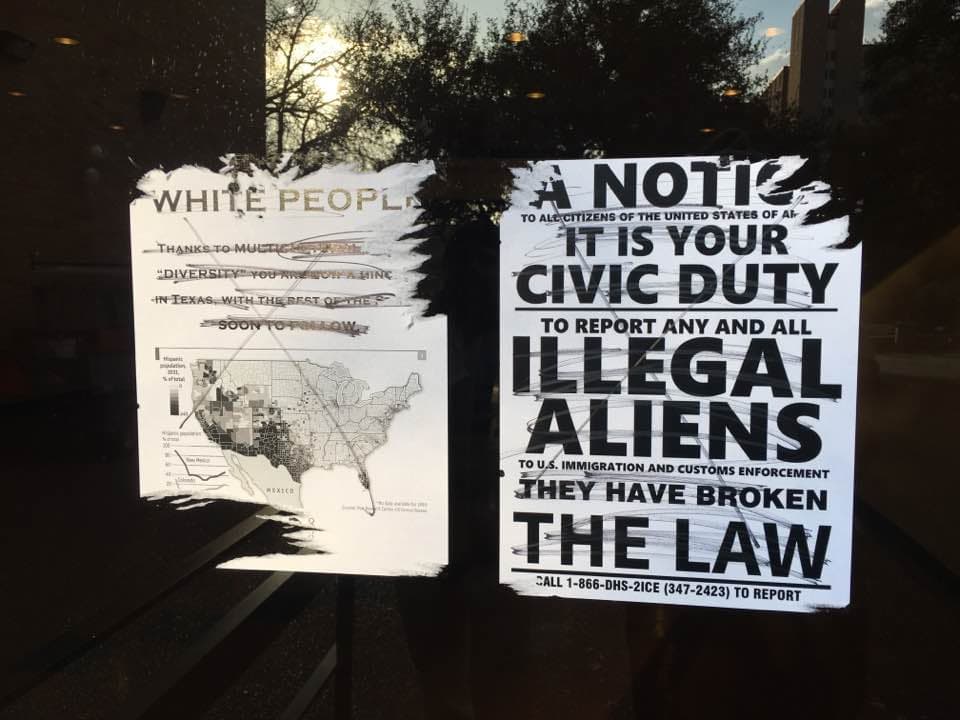 WHITE PEOPL
THANKS TO
"DIVERSITY" YOU ARE NOW A
IN TEXAS, WITH THE REST OF THE
SOON TO FOLLOW.
Hispanic
population,
2011,
% of total
Hispanic population
% of total
New Mexico
Colorado
MEXICO
A NOTIC
TO ALL CITIZENS OF THE UNITED STATES OF
IT IS YOUR
CIVIC DUTY
TO REPORT ANY AND ALL
ILLEGAL
ALIENS
TO U.S. IMMIGRATION AND CUSTOMS ENFORCEMENT
THEY HAVE BROKEN
THE LAW
CALL 1-866-DHS-2ICE (347-2423) TO REPORT